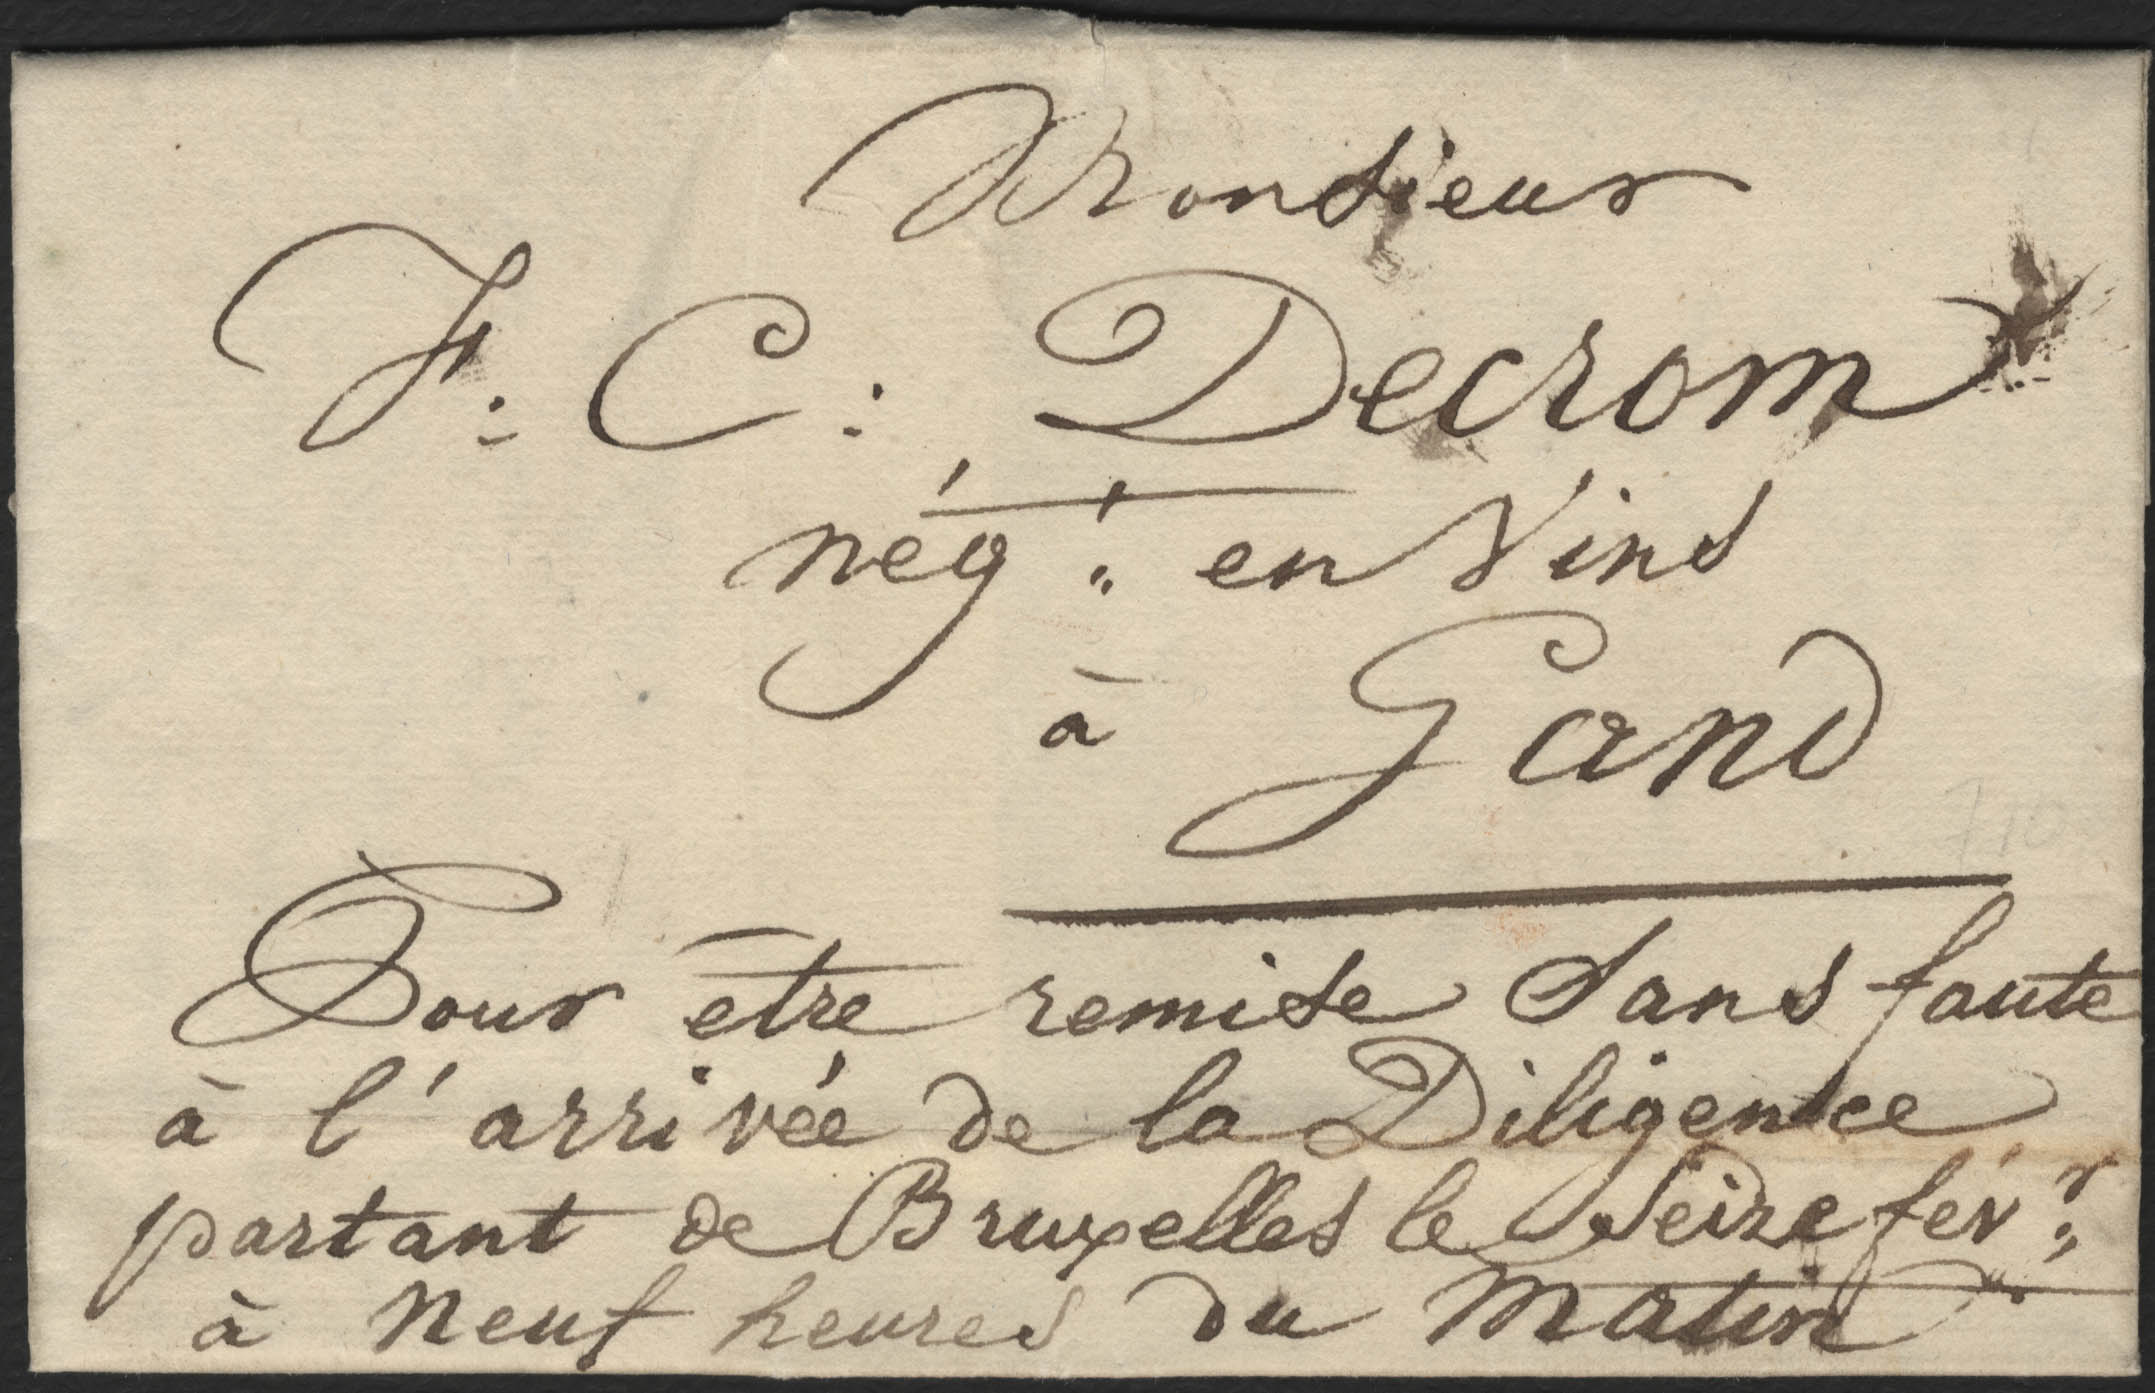 Monsieur
F: C: Decrom
négt en Vins
à Gand
Pour etre remise Sans faute
à l'arrivée de la Diligence
partant de Bruxelles le Seize févr
à Neuf heures du Matin